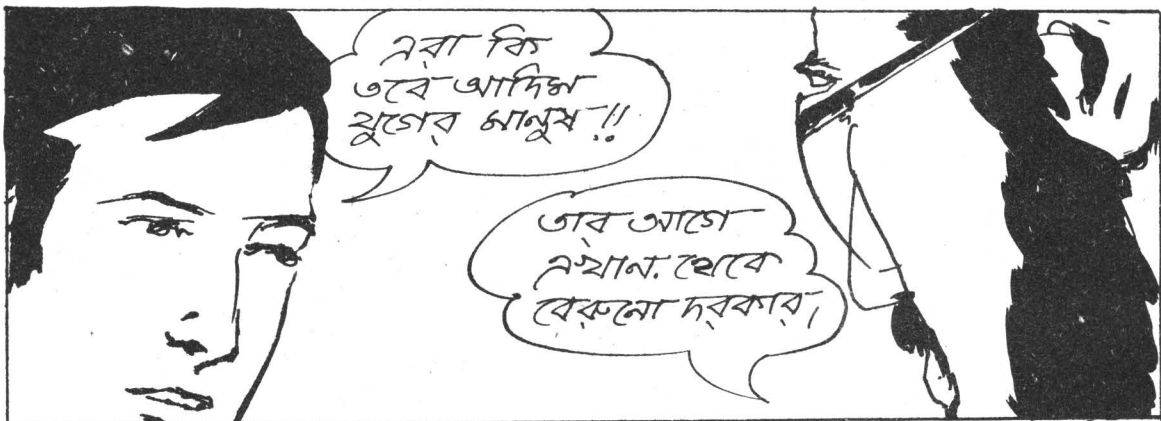 এরা কি
তবে আদিম
যুগের মানুষ!!
তার আগে
এখান থেকে
বেরুনো দরকার,